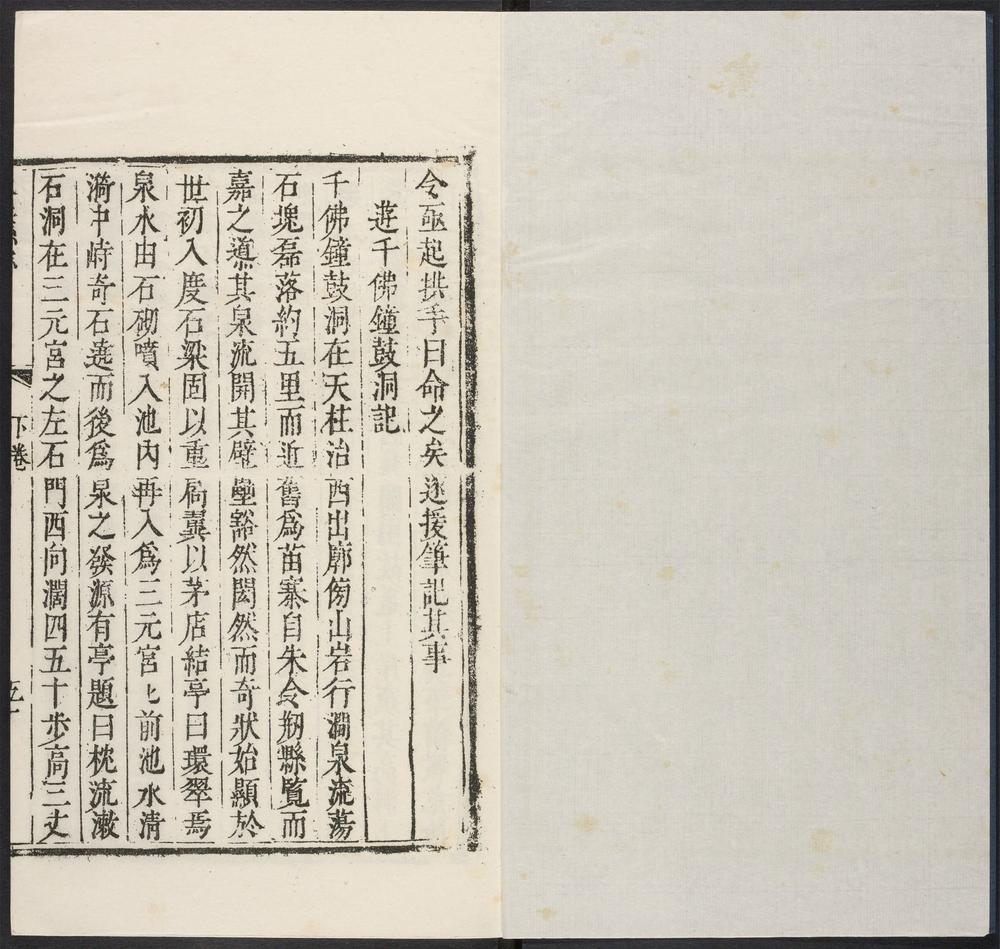 令亟起拱手曰命之矣遂援筆記其事
遊千佛鐘鼓洞記
千佛鐘鼓洞在天柱治西出廓傍山岩行澗泉流蕩
石塊磊落約五里而近舊爲苗寨自朱令剏縣覽而
嘉之導其泉流開其壁壘豁然閎然而奇狀始顯於
世初入度石梁固以重扃翼以茅店結亭曰環翠焉
泉水由石砌噴入池內再入爲三元宮上前池水清
漪中峙奇石遶而後爲泉之發源有亭題曰枕流漱
石洞在三元宮之左石門西向濶四五十步高三丈
下卷